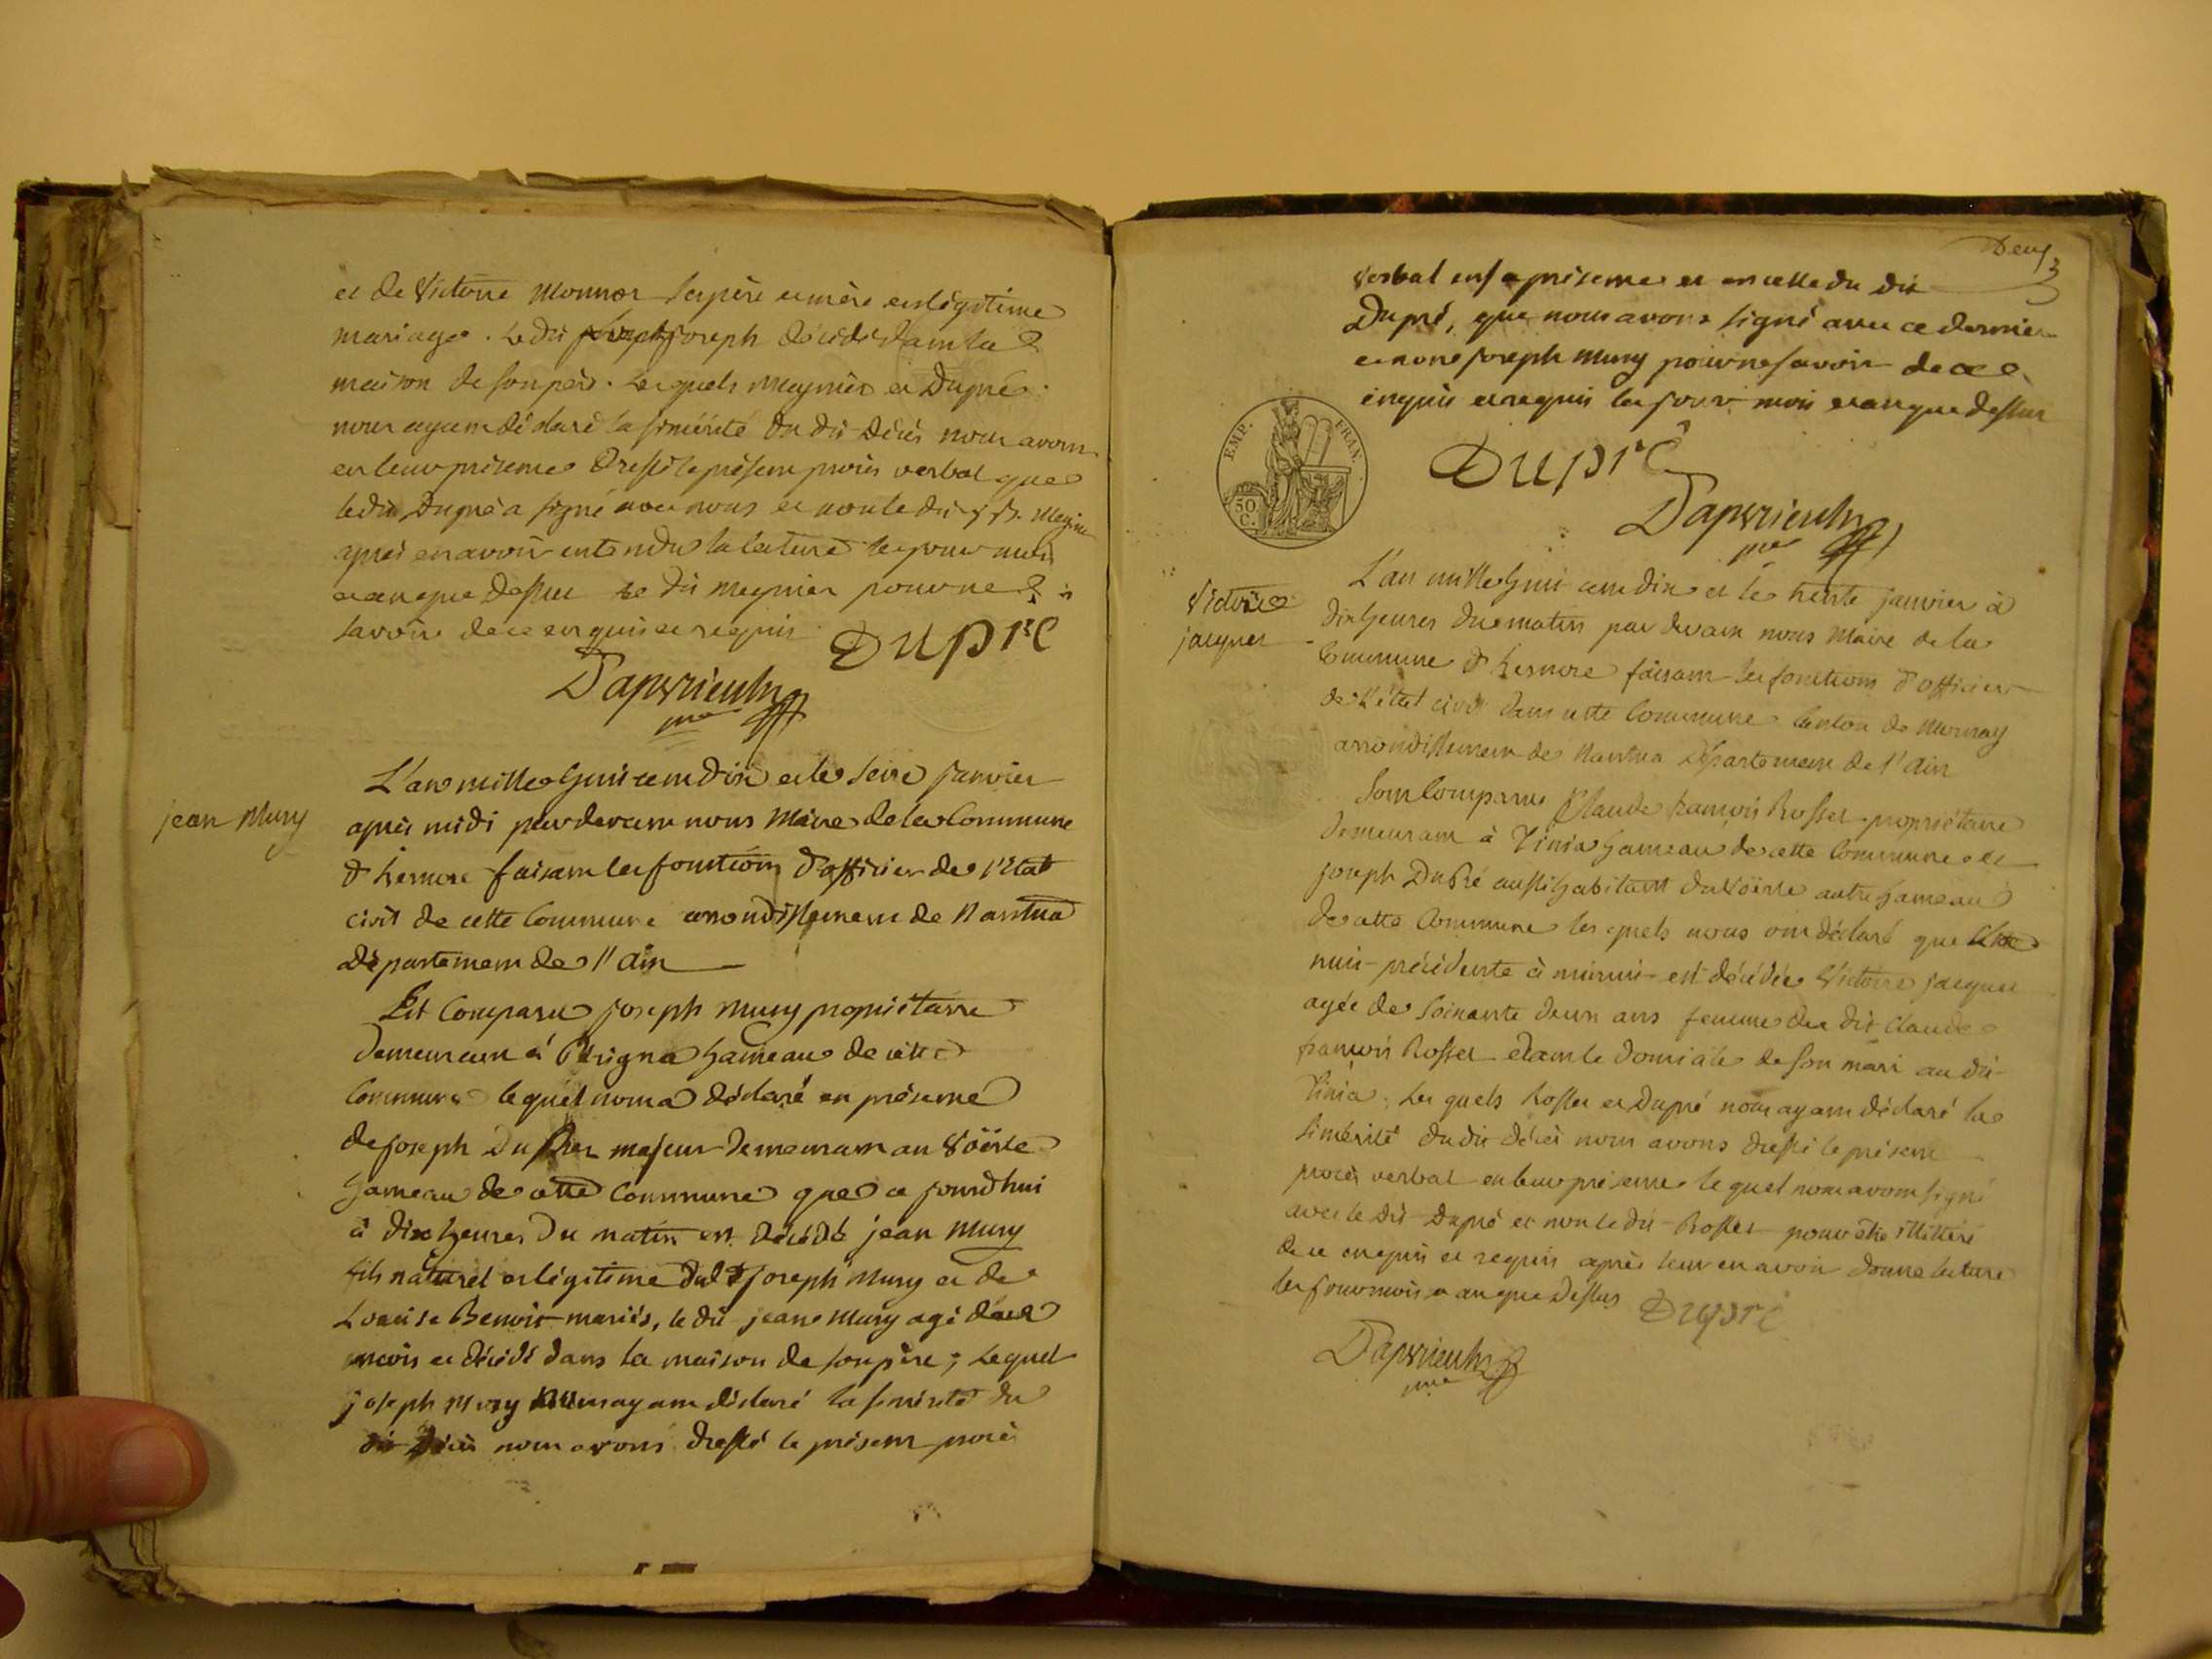 et de Victoire Monnor ses père et mère en légitime
mariage. Le dit joseph décédé dans la
maison de son père. Lesquels Meynier et Dupré
nous ayant déclaré la sincérité du dit décès nous avons
en leur présence dressé le présent procès verbal que
le dit Dupré a signé avec nous et non le dit
après en avoir entendu la lecture les jour mois
et an que dessus le dit Meynier pour ne
savoir de ce enquis et requis
Dupré
Dapvrieulx
mre
jean Mury
L'an mille huit cent dix et le seize janvier
après midi par devant nous Maire de la Commune
d'hernore faisant les fonctions d'officier de l'état
civil de cette Commune arrondissement de Nantua
département de l'ain
Est Comparu joseph Mury propriétaire
demeurant à Périgna hameau de cette
Commune lequel nous a déclaré en présence
de joseph Dupré majeur demeurant au Voërle
hameau de cette Commune que ce jourdhui
à dix heures du matin est décédé jean Mury
fils naturel et légitime dud joseph Mury et de
Louise Benoit mariés, le dit jean Mury agé
mois et décédé dans la maison de son père; Lequel
joseph Mury nous ayant déclaré la sincérité du
dit décès nous avons dressé le présent procès
Deux
verbal en sa présence et en celle du dit
Dupré, que nous avons signé avec ce dernier
et non joseph Mury pour ne savoir de ce
enquis et requis les jour mois et an que dessus
EMP. FRAN.
50 C.
Dupré
Dapvrieulx
mre
Victoire
jacques
L'an mille huit cent dix et le trente janvier à
dix heures du matin par devant nous Maire de la
Commune d'hernore faisant les fonctions d'officier
de l'état civil dans cette Commune Canton de Mornay
arrondissement de Nantua Département de l'Ain
Sont Comparus Claude françois Rosset propriétaire
demeurant à Tinia hameau de cette Commune et
joseph Dupré aussi habitant du Voërle autre hameau
de cette Commune les quels nous ont déclaré que
nuit précédente à minuit est décédée Victoire jacques
agée de soixante deux ans femme du dit Claude
françois Rosset et dans le domicile de son mari au dit
Tinia. Les quels Rosset et Dupré nous ayant déclaré la
sincérité du dit décès nous avons dressé le présent
procès verbal en leur présence le quel nous avons signé
avec le dit Dupré et non le dit Rosset pour être illitéré
de ce enquis et requis après leur en avoir donné lecture
les jour mois et an que dessus
Dupré
Dapvrieulx
mre